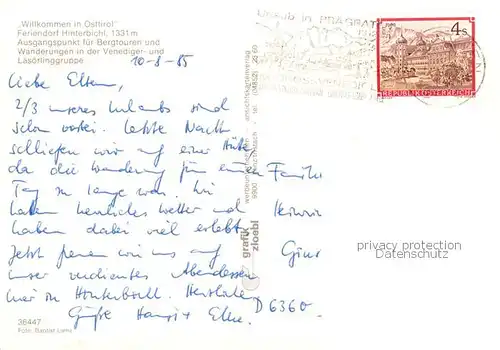 „Willkommen in Osttirol"
Feriendorf Hinterbichl, 1331m
Ausgangspunkt für Bergtouren und
Wanderungen in der Venediger- und
Lasörlinggruppe
Urlaub in PRÄGRAT
4s
REPUBLIK ÖSTERREICH
10-8-85
Liebe Eltern,
2/3 unseres Urlaubs sind
schon vorbei. Letzte Nacht
schliefen wir auf einer Hütte
da die Wanderung für einen
Tag zu lange war. Wir
haben herrliches Wetter und
haben dabei viel erlebt.
Jetzt freuen wir uns auf
unser verdientes Abendessen
hier in Hinterbichl. Herzliche
Grüße
Familie
Heinrich
D 6360
grafik
zloebl
privacy protection
Datenschutz
36447